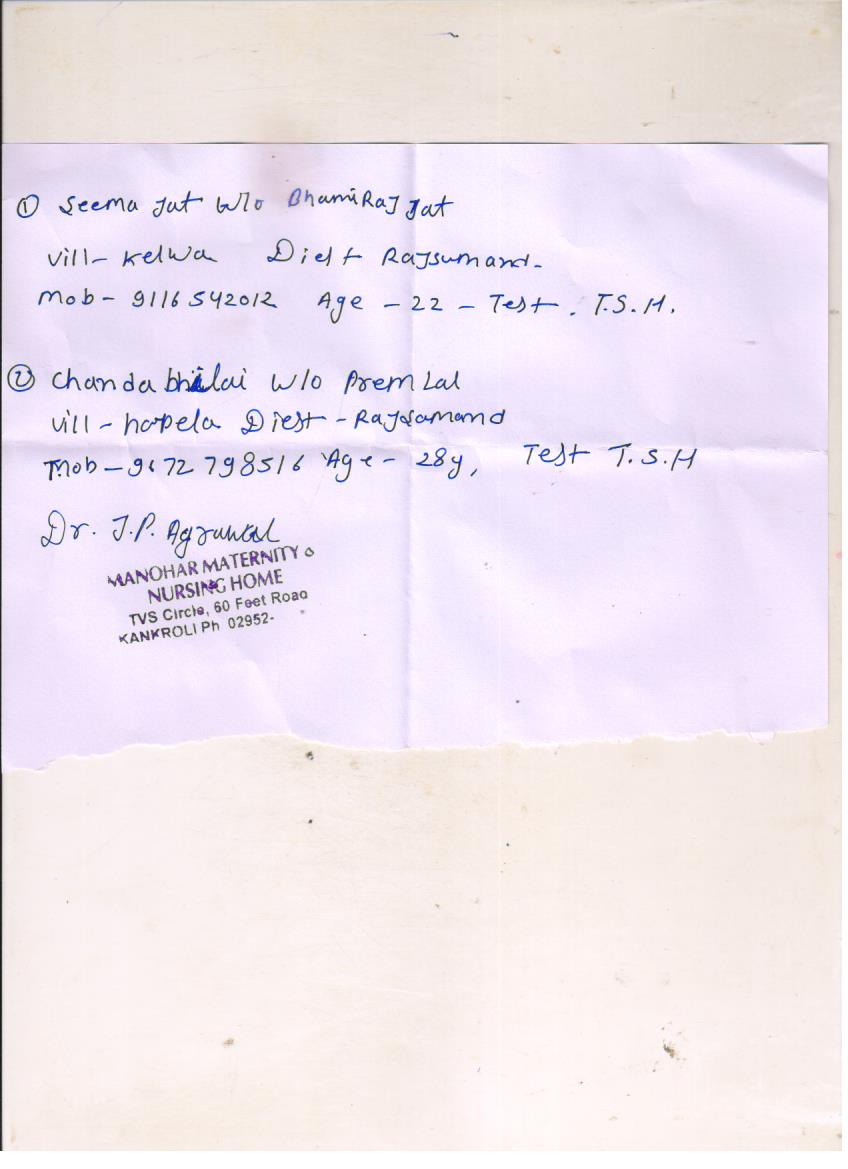 ① Seema Jat W/o BhamiRaj Jat
Vill- Kelwa Diest Rajsumand-
Mob- 9116542012 Age - 22 - Test. T.S.H.
② Chanda W/o Prem Lal
Vill - Diest - Rajsamand
Mob - 9672798516 Age - 28y, Test T.S.H
Dr. J.P. Agrawal
MANOHAR MATERNITY &
NURSING HOME
TVS Circle, 60 Feet Road
KANKROLI Ph 02952-